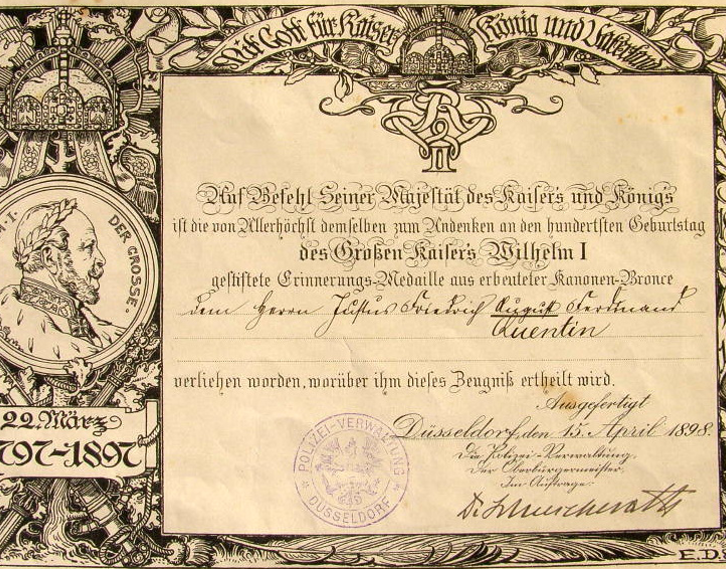 Mit Gott für Kaiser König und Vaterland
II
Auf Befehl Seiner Majestät des Kaisers und Königs
ist die von Allerhöchst demselben zum Andenken an den hundertsten Geburtstag
des Großen Kaisers Wilhelm I
gestiftete Erinnerungs-Medaille aus erbeuteter Kanonen-Bronce
dem Herrn Justus Friedrich August Ferdinand
Quentin
verliehen worden, worüber ihm dieses Zeugniß ertheilt wird.
Ausgefertigt
Düsseldorf, den 15. April 1898.
Die Polizei-Verwaltung.
Der Oberbürgermeister.
Im Auftrage:
POLIZEI-VERWALTUNG
DÜSSELDORF
M·I·
DER GROSSE·
22. März
797-1897
E.D.